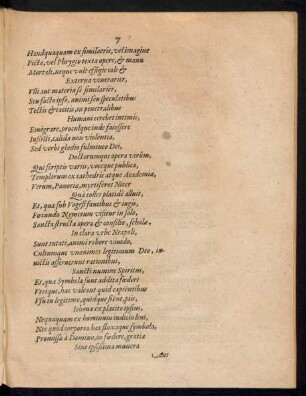 7
Haudquaquam ex similaceis, vel imagine
Picta, vel Phrygio texta opere, & manu
Mortali, neque vult effigie coli &
Externa venerarier,
Vlli aut materiæ se similarier,
Seu facto ipso, animi seu speculatibus
Tectis & tacitis, in penetralibus
Humani cerebri intimis,
Emigrare, proculque inde facessere
Insistit, calida non violentia,
Sed verbi gladio fulmineo Dei,
Doctorumque opera virûm,
Qui scriptis variis, voceque publica,
Templorum ex cathedris atque Academia,
Verum, Panaria, mystiseros Nicer
Quà colles placidè alluit,
Et, qua sub Vogesi faucibus & iugis,
Facundo Nemetum visitur in solo,
Sancta structa opera & consilio, schola
In clara vrbe Neapoli,
Sunt tutati, animi robore viuido,
Cultumque vnanimes legitimum Deo, in-
uictis asseruerunt rationibus,
Sancti numine Spiritus,
Et, quæ Symbola sunt addita fœderi
Vtrique, has valeant quid capientibus
Vsu in legitimo, quidque sient, piè,
Iehouæ ex placito ipsius,
Nequaquam ex hominum iudicio leui,
Nec quòd corporea hæc flexaque symbola,
Promissa à Domino, in fœdere, gratiæ
Sint ipsissima munera